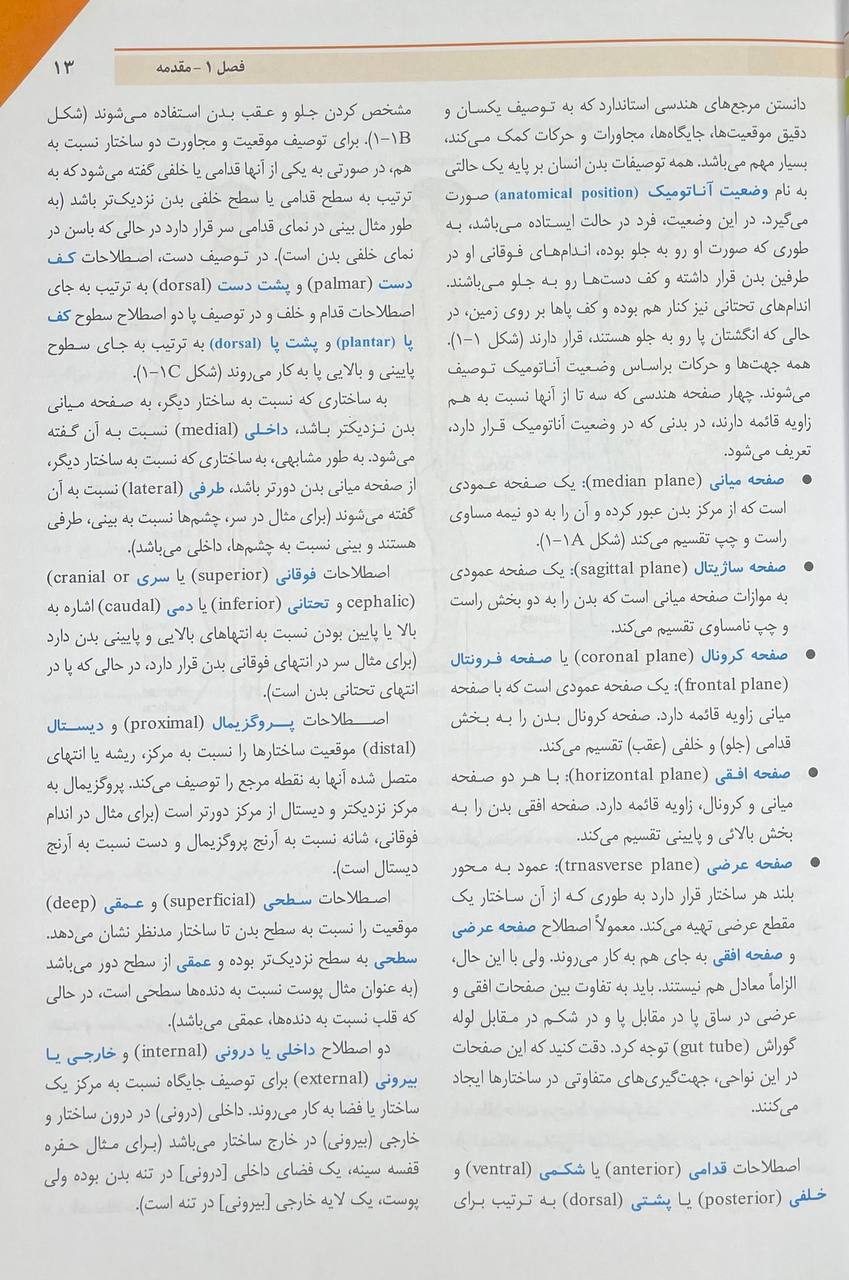 فصل ۱ – مقدمه
۱۳
دانستن مرجع‌های هندسی استاندارد که به توصیف یکسان و
دقیق موقعیت‌ها، جایگاه‌ها، مجاورات و حرکات کمک می‌کند،
بسیار مهم می‌باشد. همه توصیفات بدن انسان بر پایه یک حالتی
به نام وضعیت آناتومیک (anatomical position) صورت
می‌گیرد. در این وضعیت، فرد در حالت ایستاده می‌باشد، به
طوری که صورت او رو به جلو بوده، اندام‌های فوقانی او در
طرفین بدن قرار داشته و کف دست‌ها رو به جلو می‌باشند.
اندام‌های تحتانی نیز کنار هم بوده و کف پاها بر روی زمین، در
حالی که انگشتان پا رو به جلو هستند، قرار دارند (شکل ۱–۱).
همه جهت‌ها و حرکات براساس وضعیت آناتومیک توصیف
می‌شوند. چهار صفحه هندسی که سه تا از آنها نسبت به هم
زاویه قائمه دارند، در بدنی که در وضعیت آناتومیک قرار دارد،
تعریف می‌شود.
● صفحه میانی (median plane): یک صفحه عمودی
است که از مرکز بدن عبور کرده و آن را به دو نیمه مساوی
راست و چپ تقسیم می‌کند (شکل ۱–۱A).
● صفحه ساژیتال (sagittal plane): یک صفحه عمودی
به موازات صفحه میانی است که بدن را به دو بخش راست
و چپ نامساوی تقسیم می‌کند.
● صفحه کرونال (coronal plane) یا صفحه فرونتال
(frontal plane): یک صفحه عمودی است که با صفحه
میانی زاویه قائمه دارد. صفحه کرونال بدن را به بخش
قدامی (جلو) و خلفی (عقب) تقسیم می‌کند.
● صفحه افقی (horizontal plane): با هر دو صفحه
میانی و کرونال، زاویه قائمه دارد. صفحه افقی بدن را به
بخش بالائی و پایینی تقسیم می‌کند.
● صفحه عرضی (trnasverse plane): عمود به محور
بلند هر ساختار قرار دارد به طوری که از آن ساختار یک
مقطع عرضی تهیه می‌کند. معمولاً اصطلاح صفحه عرضی
و صفحه افقی به جای هم به کار می‌روند. ولی با این حال،
الزاماً معادل هم نیستند. باید به تفاوت بین صفحات افقی و
عرضی در ساق پا در مقابل پا و در شکم در مقابل لوله
گوراش (gut tube) توجه کرد. دقت کنید که این صفحات
در این نواحی، جهت‌گیری‌های متفاوتی در ساختارها ایجاد
می‌کنند.
اصطلاحات قدامی (anterior) یا شکمی (ventral) و
خلفی (posterior) یا پشتی (dorsal) به ترتیب برای
مشخص کردن جلو و عقب بدن استفاده می‌شوند (شکل
۱–۱B). برای توصیف موقعیت و مجاورت دو ساختار نسبت به
هم، در صورتی به یکی از آنها قدامی یا خلفی گفته می‌شود که به
ترتیب به سطح قدامی یا سطح خلفی بدن نزدیک‌تر باشد (به
طور مثال بینی در نمای قدامی سر قرار دارد در حالی که باسن در
نمای خلفی بدن است). در توصیف دست، اصطلاحات کف
دست (palmar) و پشت دست (dorsal) به ترتیب به جای
اصطلاحات قدام و خلف و در توصیف پا دو اصطلاح سطوح کف
پا (plantar) و پشت پا (dorsal) به ترتیب به جای سطوح
پایینی و بالایی پا به کار می‌روند (شکل ۱–۱C).
به ساختاری که نسبت به ساختار دیگر، به صفحه میانی
بدن نزدیکتر باشد، داخلی (medial) نسبت به آن گفته
می‌شود. به طور مشابهی، به ساختاری که نسبت به ساختار دیگر،
از صفحه میانی بدن دورتر باشد، طرفی (lateral) نسبت به آن
گفته می‌شوند (برای مثال در سر، چشم‌ها نسبت به بینی، طرفی
هستند و بینی نسبت به چشم‌ها، داخلی می‌باشد).
اصطلاحات فوقانی (superior) یا سری (cranial or
cephalic) و تحتانی (inferior) یا دمی (caudal) اشاره به
بالا یا پایین بودن نسبت به انتهاهای بالایی و پایینی بدن دارد
(برای مثال سر در انتهای فوقانی بدن قرار دارد، در حالی که پا در
انتهای تحتانی بدن است).
اصطلاحات پروگزیمال (proximal) و دیستال
(distal) موقعیت ساختارها را نسبت به مرکز، ریشه یا انتهای
متصل شده آنها به نقطه مرجع را توصیف می‌کند. پروگزیمال به
مرکز نزدیکتر و دیستال از مرکز دورتر است (برای مثال در اندام
فوقانی، شانه نسبت به آرنج پروگزیمال و دست نسبت به آرنج
دیستال است).
اصطلاحات سطحی (superficial) و عمقی (deep)
موقعیت را نسبت به سطح بدن تا ساختار مدنظر نشان می‌دهد.
سطحی به سطح نزدیک‌تر بوده و عمقی از سطح دور می‌باشد
(به عنوان مثال پوست نسبت به دنده‌ها سطحی است، در حالی
که قلب نسبت به دنده‌ها، عمقی می‌باشد).
دو اصطلاح داخلی یا درونی (internal) و خارجی یا
بیرونی (external) برای توصیف جایگاه نسبت به مرکز یک
ساختار یا فضا به کار می‌روند. داخلی (درونی) در درون ساختار و
خارجی (بیرونی) در خارج ساختار می‌باشد (برای مثال حفره
قفسه سینه، یک فضای داخلی [درونی] در تنه بدن بوده ولی
پوست، یک لایه خارجی [بیرونی] در تنه است).